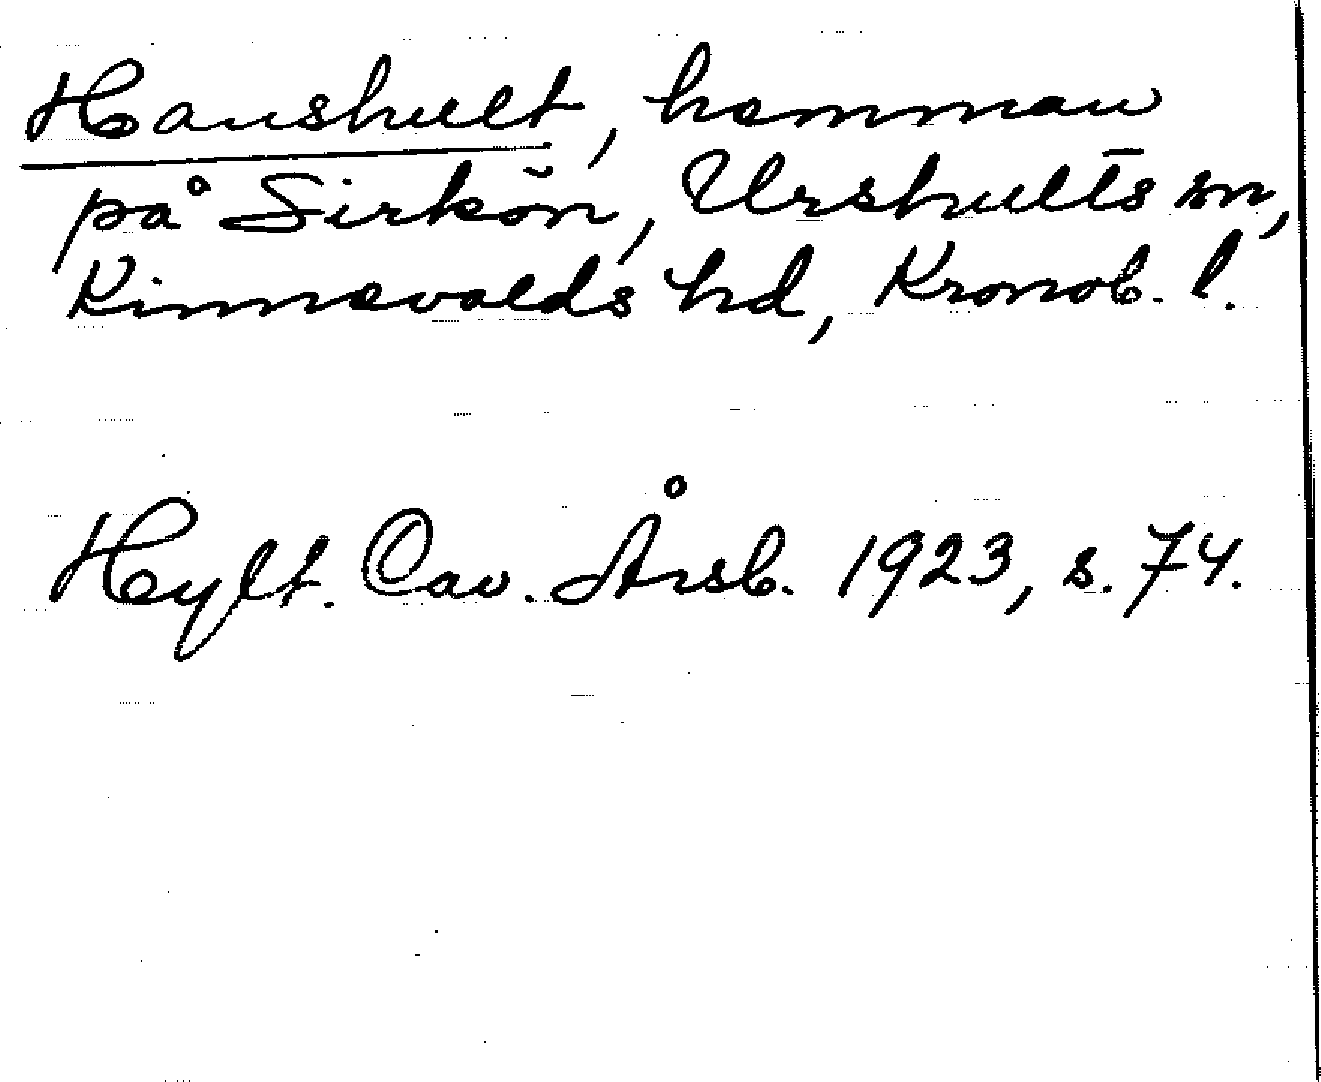 Hanshult, hemman
på Sirkön, Urshults sn,
Kinnevalds hd, Kronob. l.
Hylt. Cav. Årsb. 1923, s. 74.